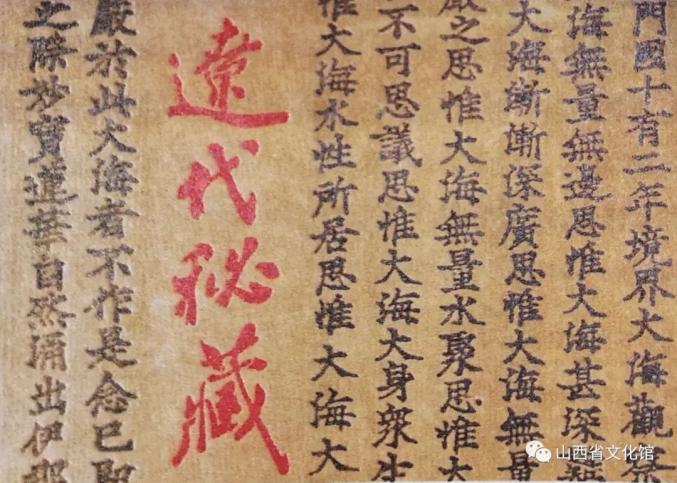 門國十有二年境界大海觀察
海無量無邊思惟大海甚深難
大海漸漸深廣思惟大海無量
嚴之思惟大海無量水聚思惟大
不可思議思惟大海大身衆生
惟大海水性所居思惟大海大
遼代秘藏
嚴於此大海者不作是念已即
之際妙寶蓮華自然涌出伊那
山西省文化馆